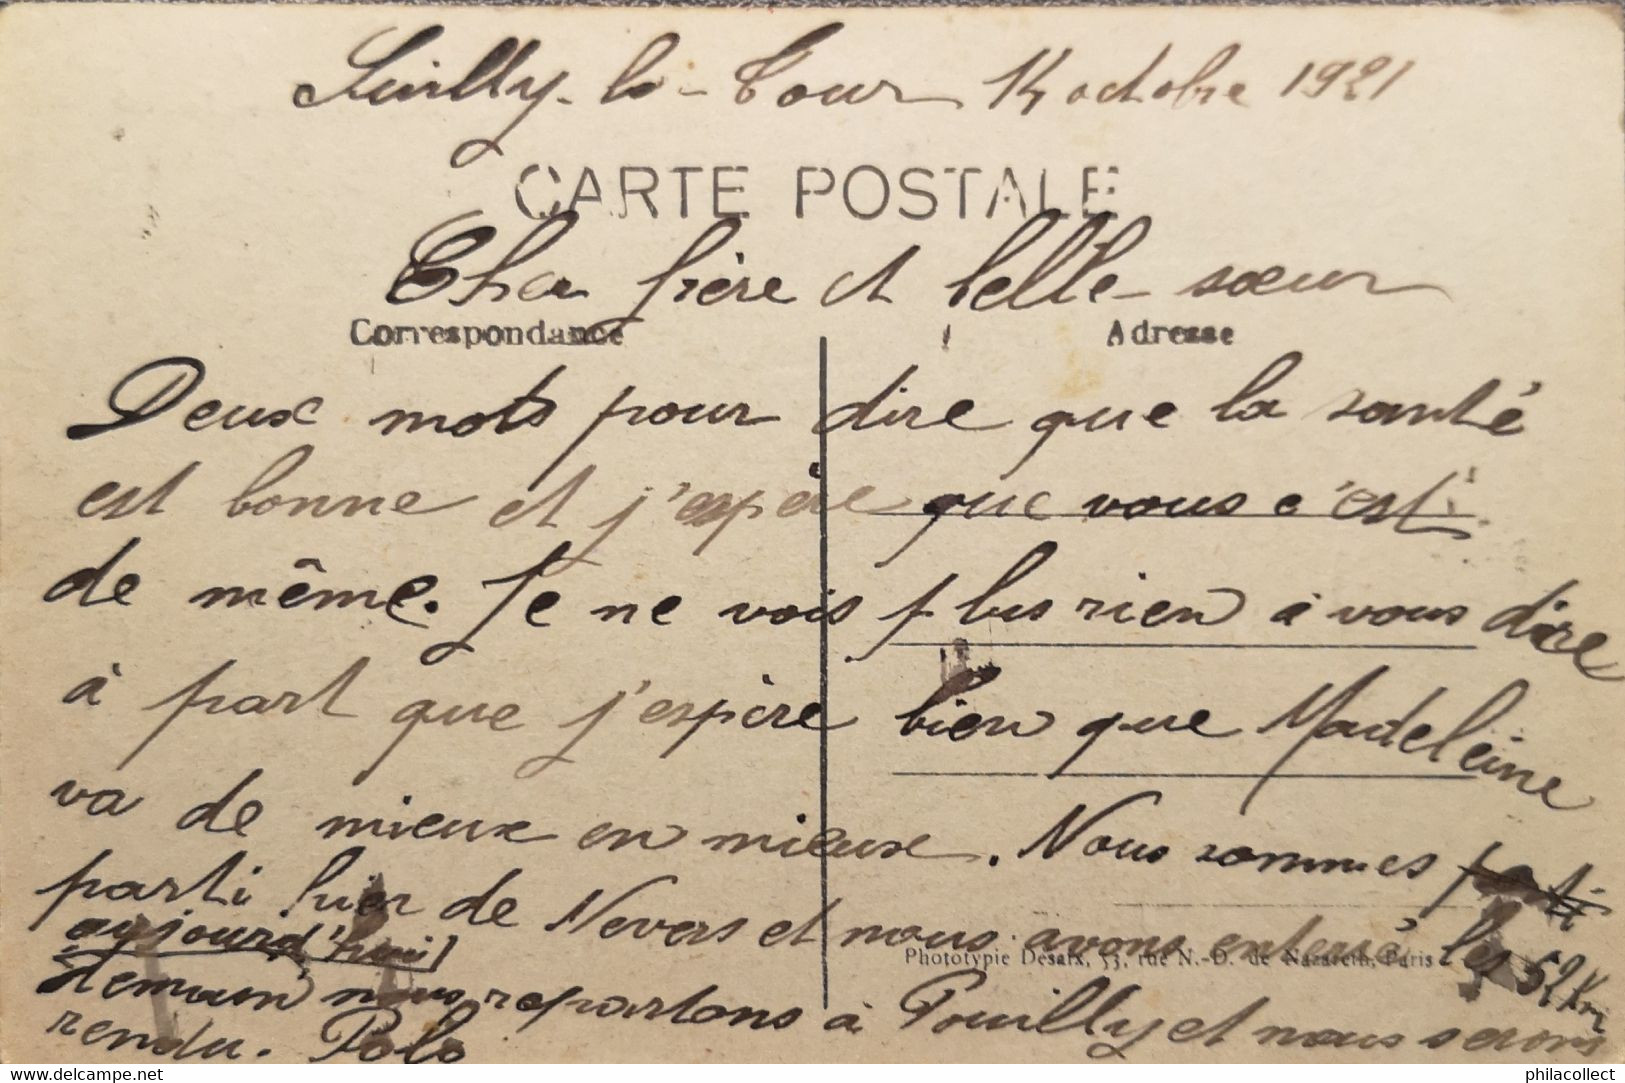 Suilly-la-Tour 14 octobre 1921
CARTE POSTALE
Cher frère et belle-sœur
Correspondance
Adresse
Deux mots pour dire que la santé
est bonne et j'espère que vous c'est
de même. Je ne vois plus rien à vous dire
à part que j'espère bien que Madeleine
va de mieux en mieux. Nous sommes parti
parti hier de Nevers et nous avons enterré les 52 Km
Phototypie Desaix, 53, rue N.-D. de Nazareth, Paris
aujourd'hui
demain nous repartons à Pouilly et nous serons
rendu. Polo
www.delcampe.net
philacollect